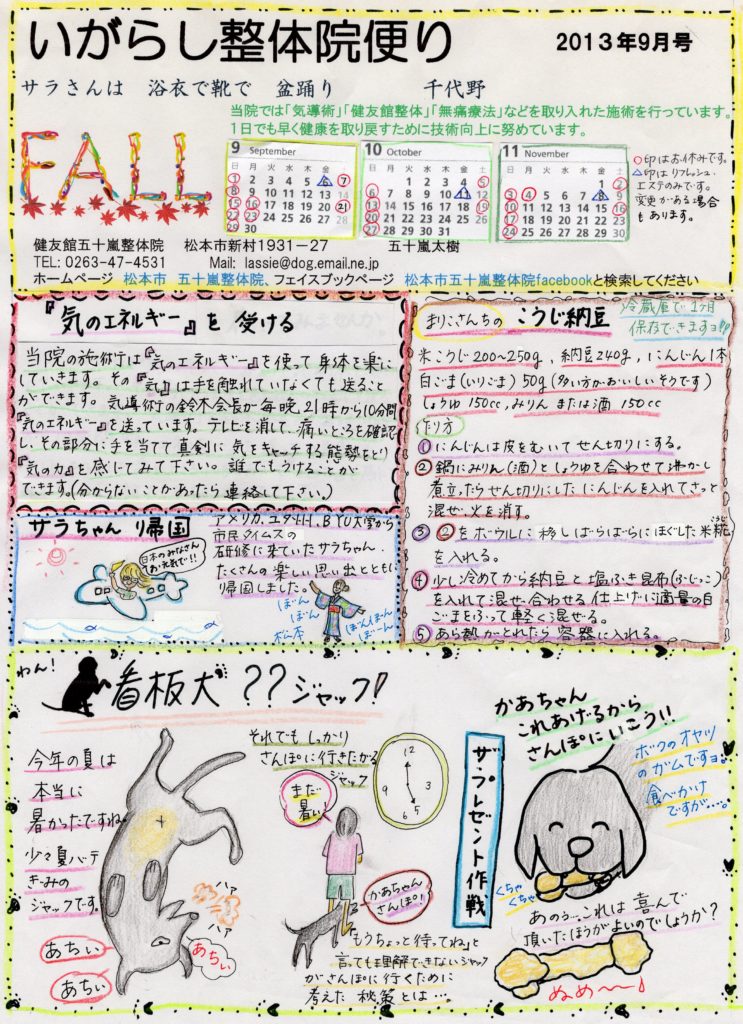 いがらし整体院便り
2013年9月号
サラさんは 浴衣で靴で 盆踊り 千代野
当院では「気導術」「健友館整体」「無痛療法」などを取り入れた施術を行っています。
1日でも早く健康を取り戻すために技術向上に努めています。
FALL
9 September
日 月 火 水 木 金 土
1 2 3 4 5 6 7
8 9 10 11 12 13 14
15 16 17 18 19 20 21
22 23 24 25 26 27 28
29 30
10 October
日 月 火 水 木 金 土
1 2 3 4 5
6 7 8 9 10 11 12
13 14 15 16 17 18 19
20 21 22 23 24 25 26
27 28 29 30 31
11 November
日 月 火 水 木 金 土
1 2
3 4 5 6 7 8 9
10 11 12 13 14 15 16
17 18 19 20 21 22 23
24 25 26 27 28 29 30
○印はお休みです。
△印はリフレッシュ・
エステのみです。
変更がある場合
もあります。
健友館五十嵐整体院 松本市新村1931-27 五十嵐太樹
TEL: 0263-47-4531 Mail: lassie@dog.email.ne.jp
ホームページ 松本市 五十嵐整体院、フェイスブックページ 松本市五十嵐整体院facebookと検索してください
『気のエネルギー』を 受ける
当院の施術は『気のエネルギー』を使って身体を楽に
していきます。その『気』は手を触れていなくても送ること
ができます。気導術の鈴木会長が毎晩、21時から10分間
『気のエネルギー』を送っています。テレビを消して、痛いところを確認
し、その部分に手を当てて真剣に気をキャッチする態勢をとり
『気の力』を感じてみて下さい。誰でもうけることが
できます。(分からないことがあったら連絡して下さい。)
サラちゃん帰国
アメリカ、ユタ州、BYU大学から
市民タイムスの
研修に来ていたサラちゃん、
たくさんの楽しい思い出とともに
帰国しました。
日本のみなさん
お元気で!!
ぼん
ぼん
松本
ぼんぼん
ぼーん
まりこさんちの こうじ納豆
冷蔵庫で1ヶ月
保存できますョ!!
米こうじ200~250g、納豆240g、にんじん1本
白ごま(いりごま)50g(多い方がおいしいそうです)
しょうゆ150cc、みりんまたは酒 150cc
作り方
①にんじんは皮をむいてせん切りにする。
②鍋にみりん(酒)としょうゆを合わせて沸かし
煮立ったらせん切りにしたにんじんを入れてさっと
混ぜ、火を消す。
③②をボウルに移しばらばらにほぐした米糀
を入れる。
④少し冷めてから納豆と塩ふき昆布(ふじっこ)
を入れて混ぜ合わせる 仕上げに適量の白
ごまをふって軽く混ぜる。
⑤あら熱がとれたら容器に入れる。
わん!
看板犬??ジャック!
今年の夏は
本当に
暑かったですね。
少々夏バテ
ぎみの
ジャックです。
あちぃ
あちぃ
あちぃ
ハァ
ハァ
それでもしっかり
さんぽに行きたがる
ジャック
まだ
暑い!
12
3
5
6
9
かあちゃん
さんぽ!
「もうちょっと待ってね」と
言っても理解できないジャック
がさんぽに行くために
考えた秘策とは…
ザ・プレゼント作戦
かあちゃん
これあげるから
さんぽにいこう!!
ボクのオヤツ
のガムですョ。
食べかけ
ですが…。
くちゃ
くちゃ
あのぅ…これは喜んで
頂いたほうがよいのでしょうか?
ぬめ~♪